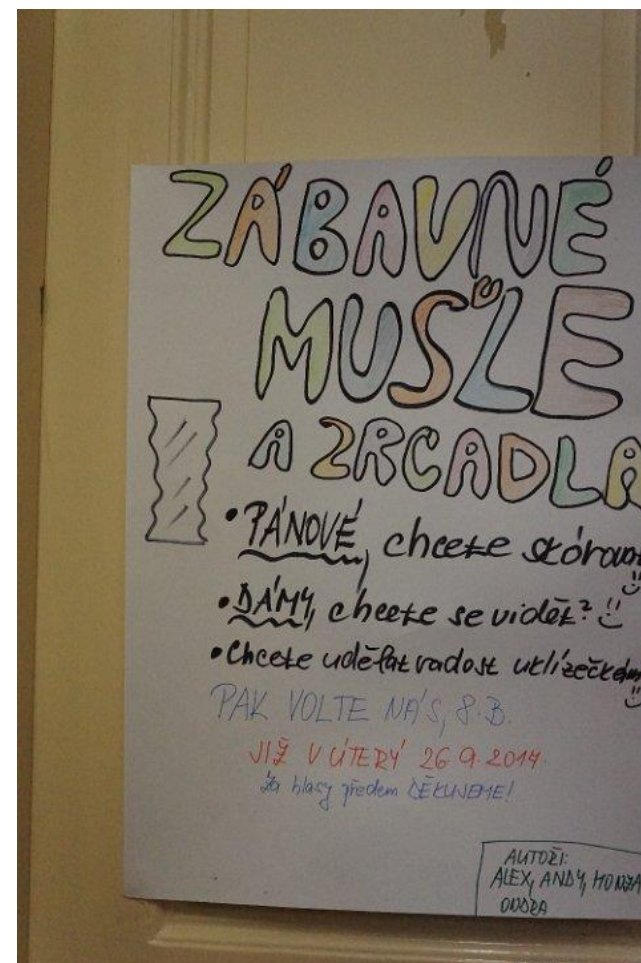 ZÁBAVNÉ
MUŠLE
A ZRCADLA
• PÁNOVÉ, chcete skórovat
• DÁMY, chcete se vidět? !!
• Chcete udělat radost uklízečkám
PAK VOLTE NÁS, 8.B.
JIŽ V ÚTERÝ 26.9.2017
Za hlasy předem DĚKUJEME!
AUTOŘI:
ALEX, ANDY, HONZA
ONDRA